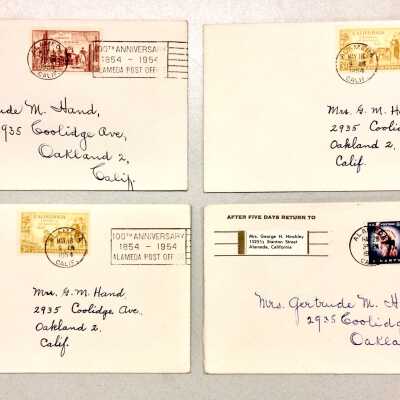 ALAMEDA
CALIF.
100TH ANNIVERSARY
1854 - 1954
ALAMEDA POST OFF
rude M. Hand,
2935 Coolidge Ave,
Oakland 2,
Calif.
CALIFORNIA
ALAMEDA
1954
CALIF.
Mrs. G. M. H
2935 Coolid
Oakland 2
Calif.
CALIFORNIA
MAY 18
1954
CALIF.
100TH ANNIVERSARY
1854 - 1954
ALAMEDA POST OFF
Mrs. G. M. Hand
2935 Coolidge Ave.,
Oakland 2,
Calif.
AFTER FIVE DAYS RETURN TO
Mrs. George H. Hinckley
Stanton Street
Alameda, California
ALAMEDA
CALIF.
Mrs. Gertrude M. H
2935 Coolid
Oakla